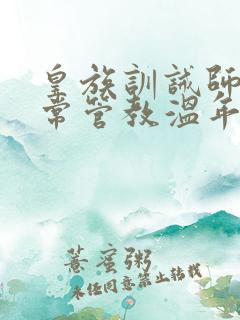 皇族訓誡師
常管教溫年
薏蜜粥
未任同意禁止转載